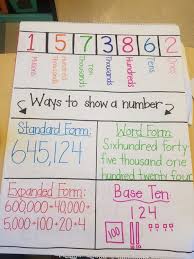 1 5 7 3 8 6 2
Millions
Hundred Thousands
Ten Thousands
Thousands
Hundreds
Tens
Ones
Ways to show a number
Standard Form:
645,124
Word Form:
Sixhundred forty
five thousand one
hundred twenty four
Expanded Form:
600,000+40,000+
5,000+100+20+4
Base Ten:
124
100